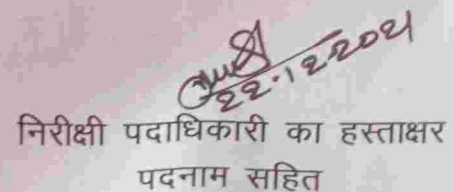 22.12.2021
निरीक्षी पदाधिकारी का हस्ताक्षर
पदनाम सहित